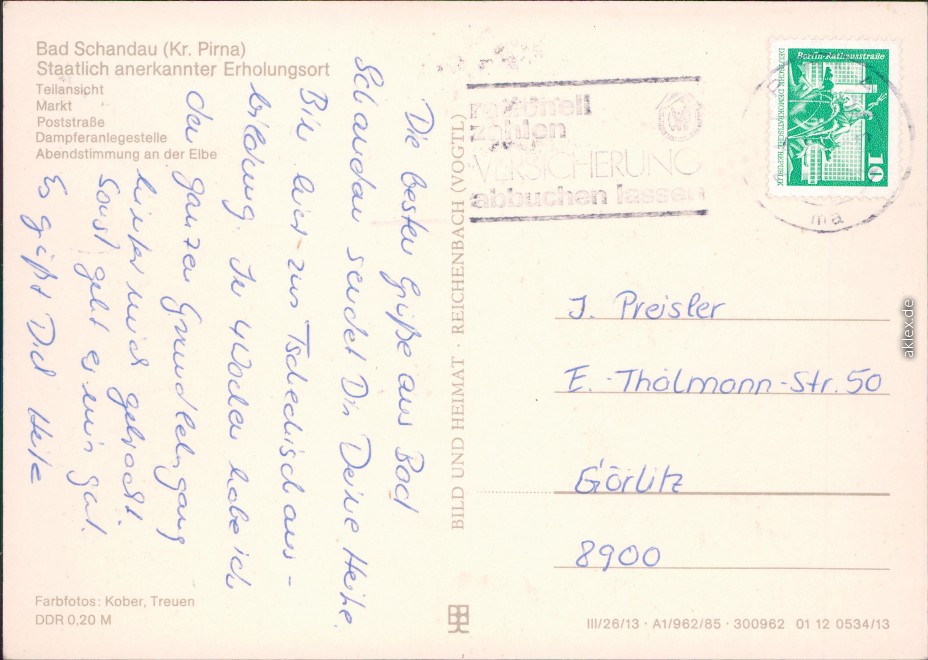 Bad Schandau (Kr. Pirna)
Staatlich anerkannter Erholungsort
Teilansicht
Markt
Poststraße
Dampferanlegestelle
Abendstimmung an der Elbe
Die besten Grüße aus Bad
Schandau sendet Dir Deine Heike.
Bin hier zur Tschechischaus-
bildung. In 4 Wochen habe ich
den ganzen Grundlehrgang
hinter mich gebracht.
Sonst geht es mir gut.
Es grüßt Dich Heike
Farbfotos: Kober, Treuen
DDR 0,20 M
BILD UND HEIMAT · REICHENBACH (VOGTL)
rationell
zahlen
VERSICHERUNG
abbuchen lassen
Berlin-Rathausstraße
DEUTSCHE DEMOKRATISCHE REPUBLIK
10
ma
J. Preisler
E.-Thälmann-Str. 50
Görlitz
8900
III/26/13 · A1/962/85 · 300962 01 12 0534/13
aklex.de